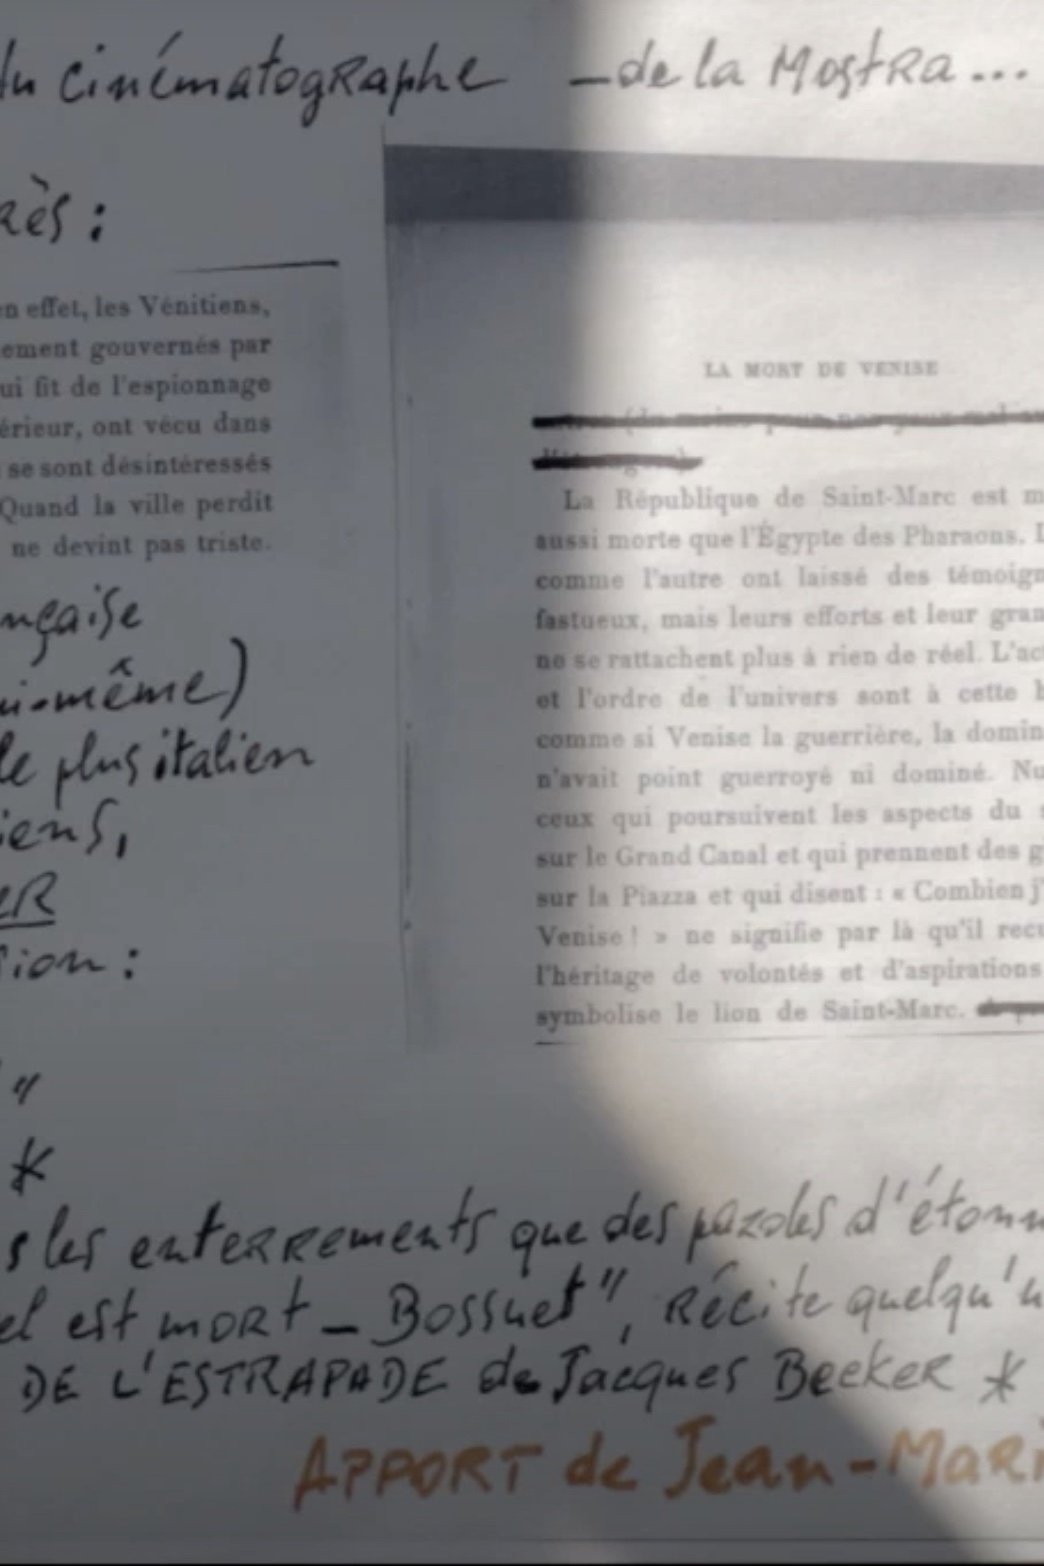 du Cinématographe – de la Mostra...
rès :
en effet, les Vénitiens,
ement gouvernés par
ui fit de l'espionnage
érieur, ont vécu dans
se sont désintéressés
Quand la ville perdit
ne devint pas triste.
nçaise
ui-même)
le plus italien
iens,
ER
sion :
"
*
LA MORT DE VENISE
La République de Saint-Marc est m
aussi morte que l'Égypte des Pharaons. L
comme l'autre ont laissé des témoign
fastueux, mais leurs efforts et leur gran
ne se rattachent plus à rien de réel. L'act
et l'ordre de l'univers sont à cette h
comme si Venise la guerrière, la domin
n'avait point guerroyé ni dominé. Nu
ceux qui poursuivent les aspects du s
sur le Grand Canal et qui prennent des g
sur la Piazza et qui disent : « Combien j'
Venise ! » ne signifie par là qu'il recu
l'héritage de volontés et d'aspirations
symbolise le lion de Saint-Marc.
s les enterrements que des paroles d'étonn
el est mort – Bossuet", Récite quelqu'u
DE L'ESTRAPADE de Jacques Becker *
APPORT de Jean-Mari